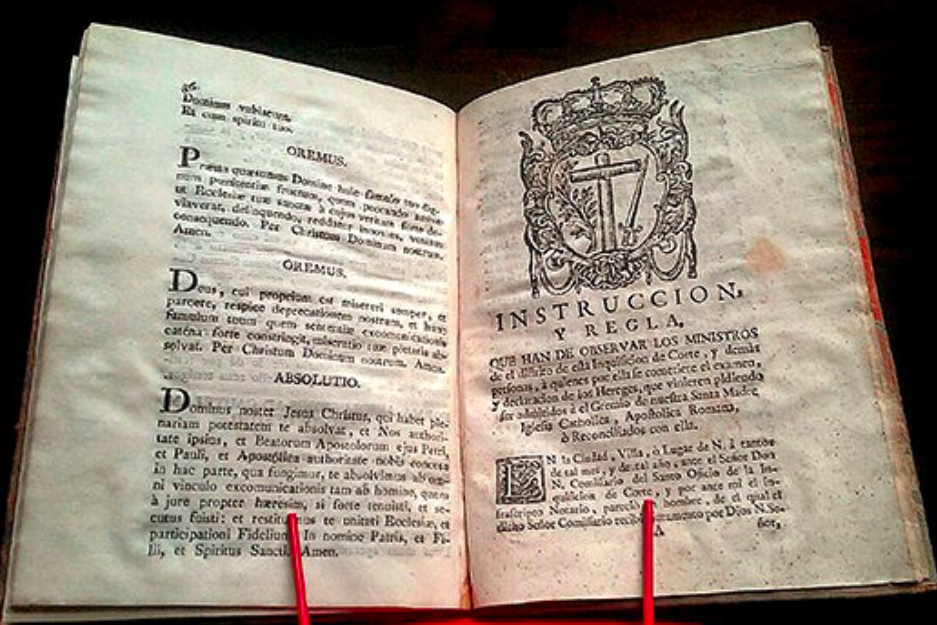 36.
Dominus vobiscum.
Et cum spiritu tuo.
OREMUS.
Præsta quæsumus Domine huic famulo tuo dig-
num pœnitentiæ fructum, quem peccando amis-
ut Ecclesiæ tuæ sanctæ à cujus veritate forte de-
viaverat, delinquendo, reddatur innoxius, veniam
consequendo. Per Christum Dominum nostrum.
Amen.
OREMUS.
Deus, cui proprium est misereri semper, et
parcere, respice deprecationem nostram, et hunc
famulum tuum quem sententiæ excommunicationis
catena forte constringit, miseratio tuæ pietatis ab-
solvat. Per Christum Dominum nostrum. Amen.
ABSOLUTIO.
Dominus noster Jesus Christus, qui habet ple-
nariam potestatem te absolvat, et Nos authori-
tate ipsius, et Beatorum Apostolorum ejus Petri,
et Pauli, et Apostolica authoritate nobis concessa
in hac parte, qua fungimur, te absolvimus ab om-
ni vinculo excomunicationis tam ab homine,
à jure propter hæresim, si forte tenuisti, et se-
cutus fuisti: et restituimus te unitati Ecclesiæ, et
participationi Fidelium. In nomine Patris, et Fi-
lii, et Spiritus Sancti. Amen.
INSTRUCCION,
Y REGLA,
QUE HAN DE OBSERVAR LOS MINISTROS
de el distrito de esta Inquisicion de Corte, y demàs
personas, à quienes por ella se cometiere el examen,
y declaracion de los Hereges, que vinieren pidiendo
ser admitidos à el Gremio de nuestra Santa Madre
Iglesia Catholica, Apostolica Romana,
ò Reconciliados con ella.
EN la Ciudad, Villa, ò Lugar de N. à tantos
de tal mes, y de tal año, ante el Señor Don
N. Comisario del Santo Oficio de la In-
quisicion de Corte, y por ante mi el in-
frascripto Notario, pareciò hombre, de el qual el
dicho Señor Comisario recibiò juramento por Dios N. Se-
A
ñor,